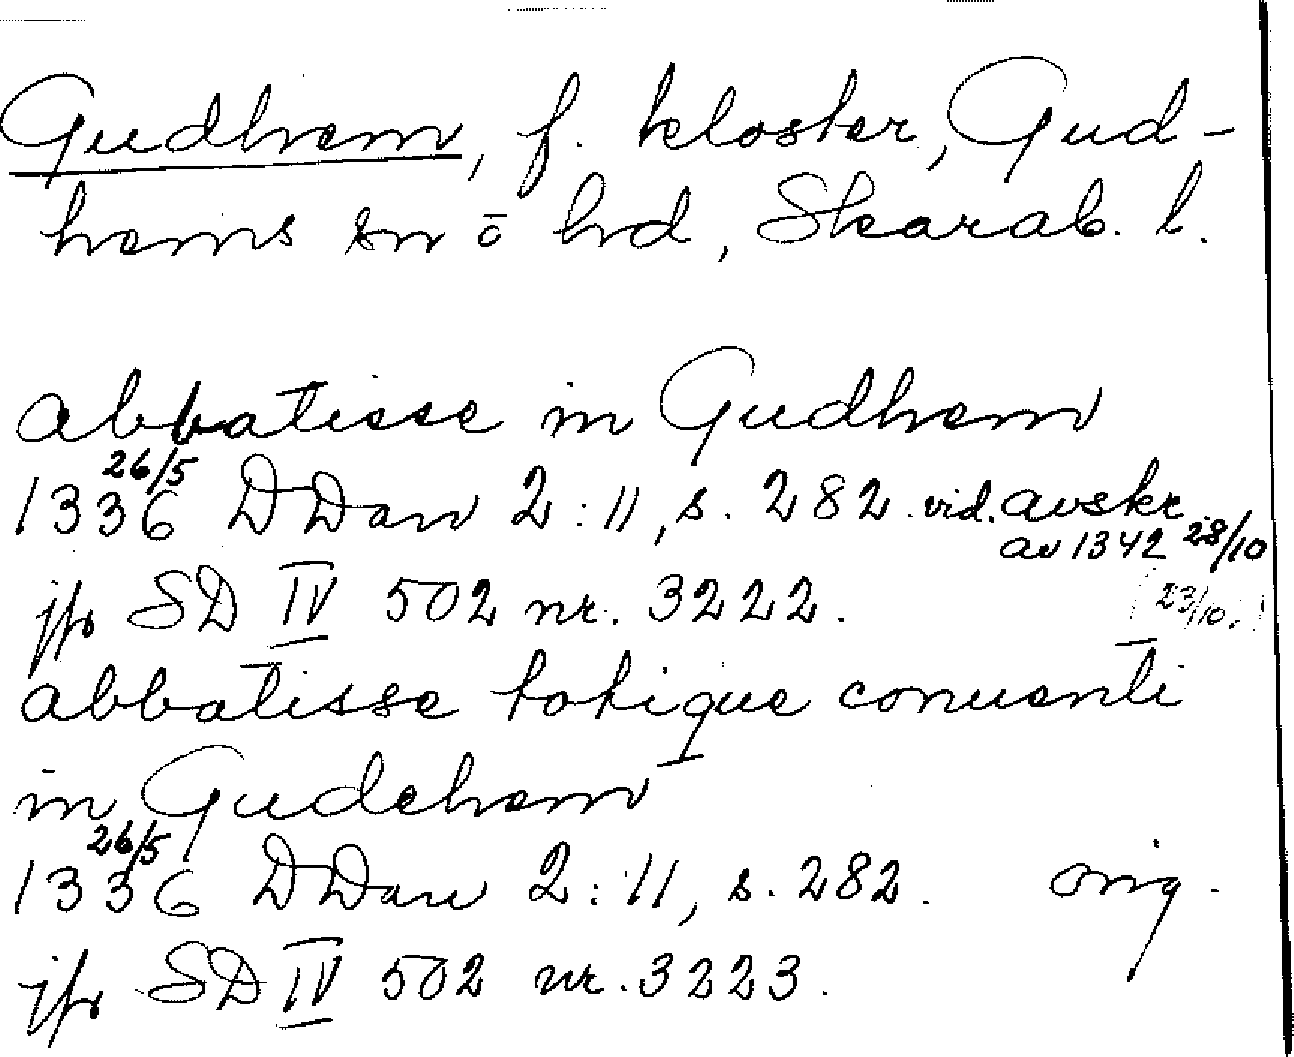 Gudhem, f. kloster, Gud-
hems sn o hd, Skarab. l.
abbatisse in Gudhem
1336 26/5 DDan 2:11, s. 282. vid. avskr.
av 1342 28/10
jfr SD IV 502 nr. 3222. (23/10.)
abbatisse totique conuenti
in Gudehem
1336 26/5 DDan 2:11, s. 282. orig.
jfr SD IV 502 nr. 3223.